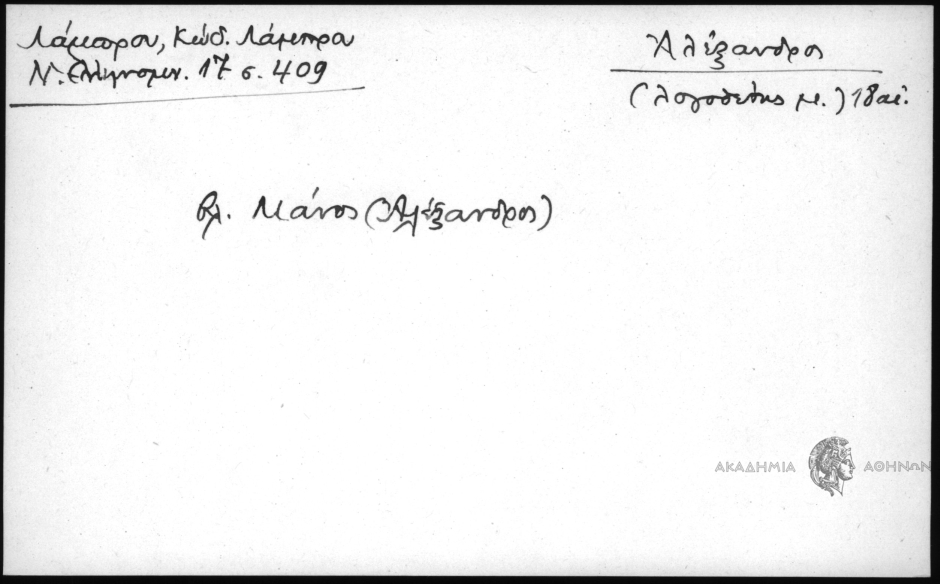 Λάμπρου, Κώδ. Λάμπρου
Ν. Ελληνομν. 17 σ. 409
Ἀλέξανδρος
(λογοθέτης μ.) 18 αἰ.
βλ. Μάνος (Ἀλέξανδρος)
ΑΚΑΔΗΜΙΑ ΑΘΗΝΩΝ